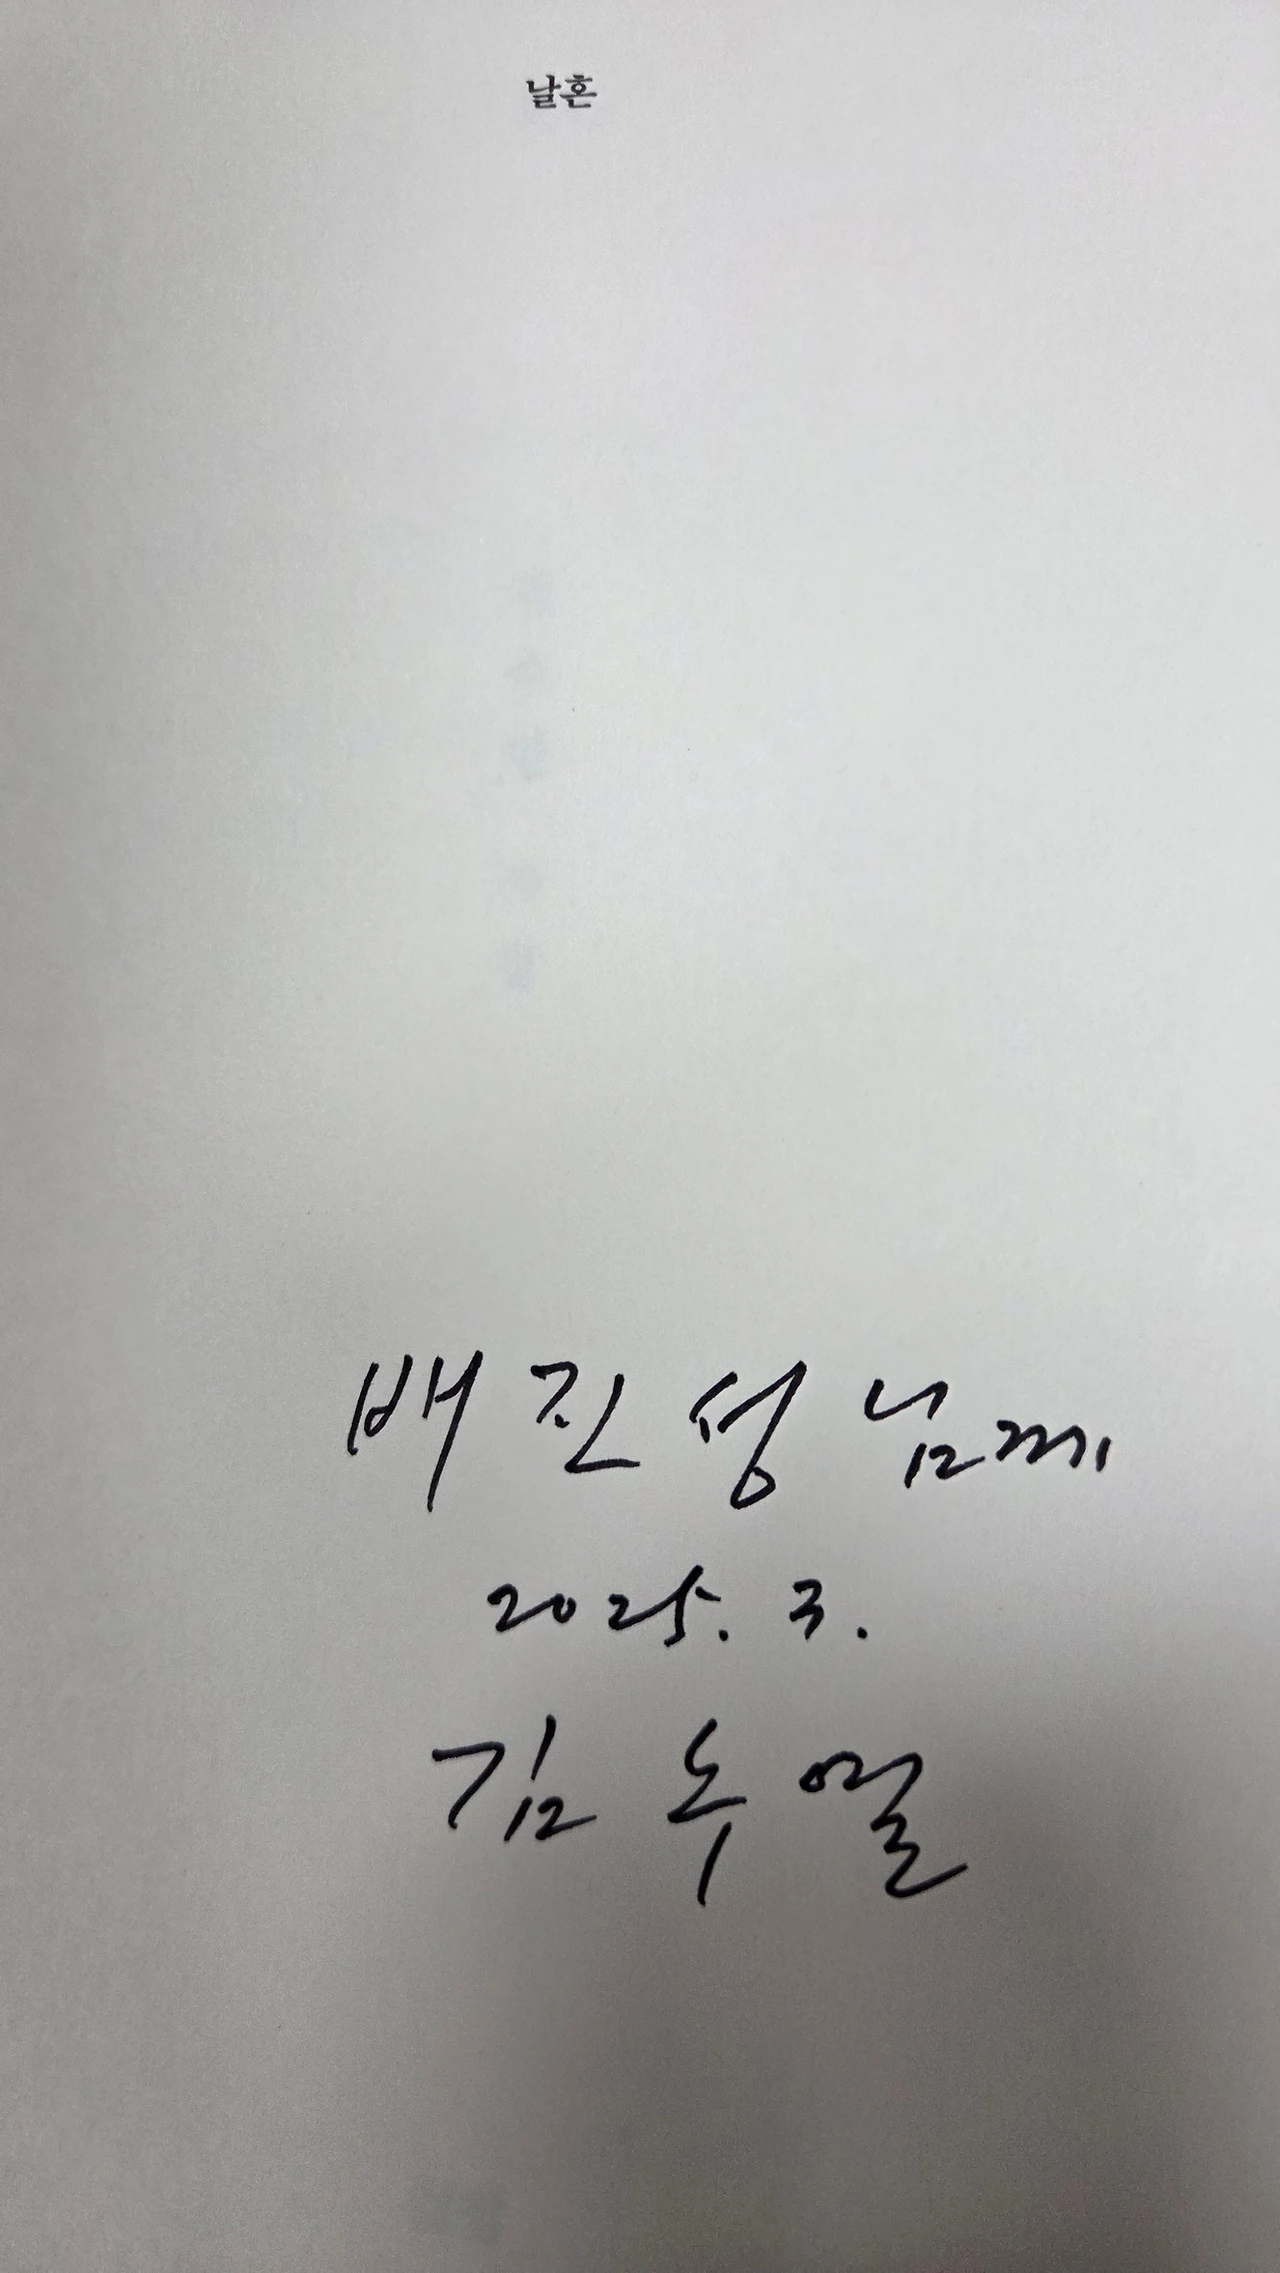 날혼
배진성님께
2025. 3.
김수열